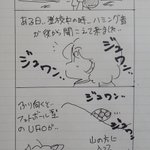 ある日、登校中の時、ハミング音
が後から聞こえて来ました…
ジュワン
ジュワン、
ふり向くと、
フットボール型
の UFOが…
ジュワン…
ジュワン…
山の方に